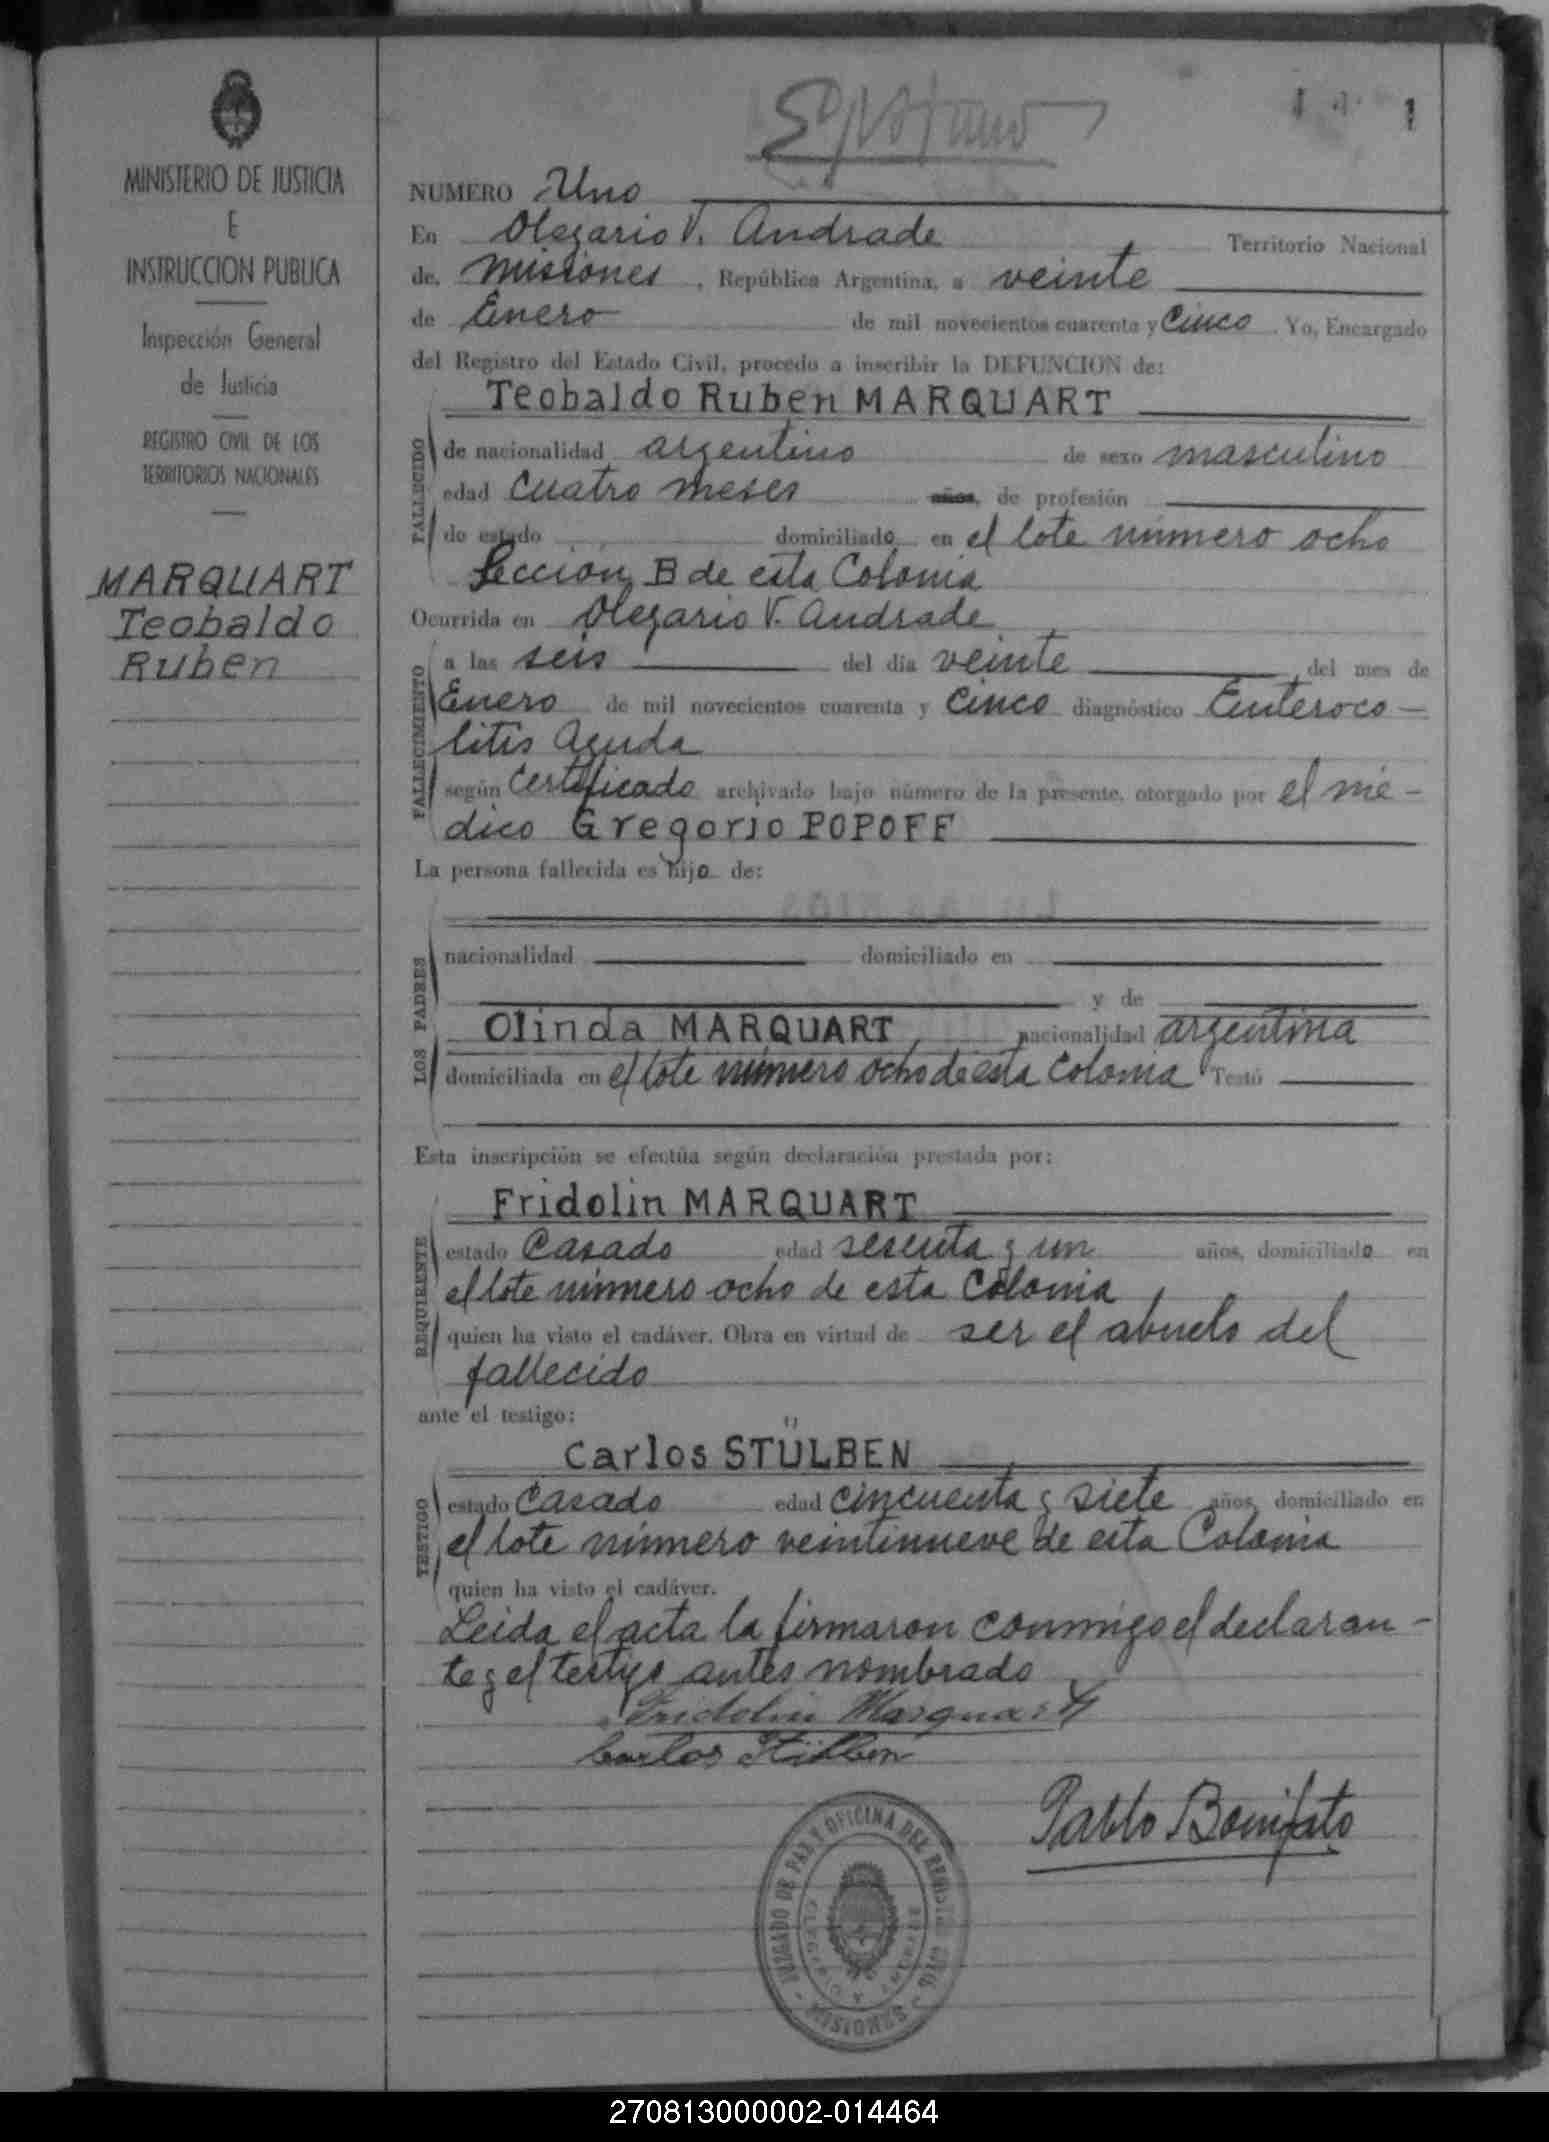 1
MINISTERIO DE JUSTICIA
E
INSTRUCCION PUBLICA
Inspección General
de Justicia
REGISTRO CIVIL DE LOS
TERRITORIOS NACIONALES
MARQUART
Teobaldo
Ruben
NUMERO Uno
En Olegario V. Andrade Territorio Nacional
de, Misiones, República Argentina, a veinte
de Enero de mil novecientos cuarenta y Cinco Yo, Encargado
del Registro del Estado Civil, procedo a inscribir la DEFUNCION de:
Teobaldo Ruben MARQUART
FALLECIDO
de nacionalidad argentino de sexo masculino
edad Cuatro meses años, de profesión
de estado domiciliado en el lote número ocho
Sección B de esta Colonia
Ocurrida en Olegario V. Andrade
FALLECIMIENTO
a las seis del día veinte del mes de
Enero de mil novecientos cuarenta y Cinco diagnóstico Enteroco-
litis Aguda
según Certificado archivado bajo número de la presente, otorgado por el mé-
dico Gregorio POPOFF
La persona fallecida es hijo de:
LOS PADRES
nacionalidad domiciliado en
y de
Olinda MARQUART, nacionalidad argentina
domiciliada en el lote número ocho de esta Colonia Testó
Esta inscripción se efectúa según declaración prestada por:
Fridolin MARQUART
REQUIRENTE
estado Casado edad sesenta y un años, domiciliado en
el lote número ocho de esta Colonia
quien ha visto el cadáver. Obra en virtud de ser el abuelo del
fallecido
ante el testigo:
Carlos STÜLBEN
TESTIGO
estado Casado edad cincuenta y siete años, domiciliado en
el lote número veintinueve de esta Colonia
quien ha visto el cadáver.
Leida el acta la firmaron conmigo el declaran-
te y el testigo antes nombrado
Fridolin Marquart
Carlos Stülben
Pablo Bonifato
JUZGADO DE PAZ Y OFICINA DEL REGISTRO CIVIL
- MISIONES -
270813000002-014464